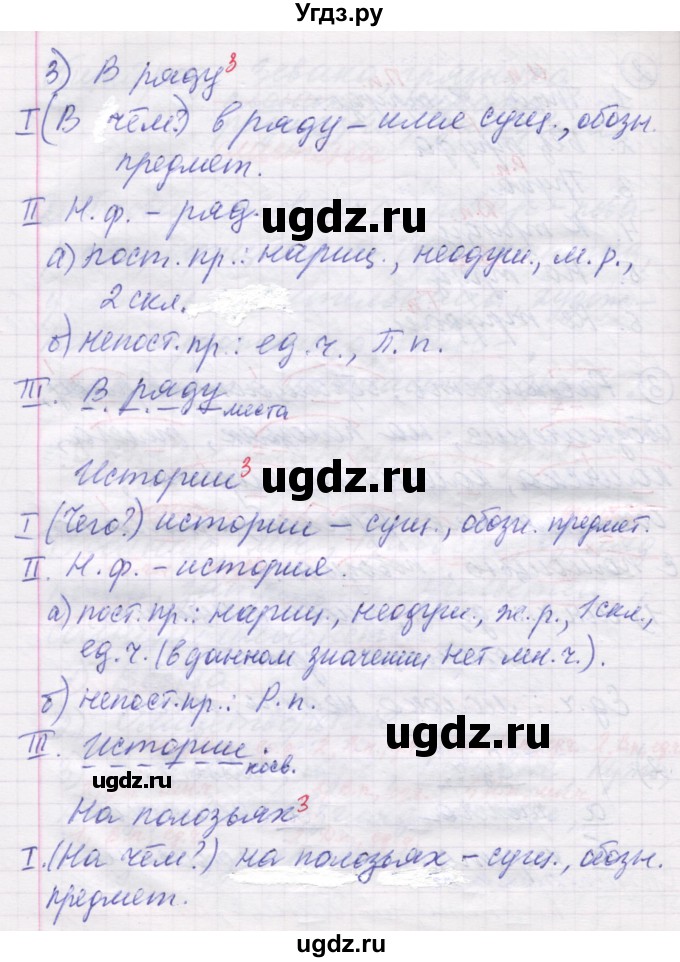 Угдз.ру
3) В ряду³
I (В чём?) в ряду – имя сущ., обозн.
предмет.
II Н. ф. – ряд.
ugdz.ru
а) пост. пр.: нариц., неодуш., м. р.,
2 скл.
б) непост. пр.: ед. ч., П. п.
III. В ряду места
Истории³
ugdz.ru
I (Чего?) истории – сущ., обозн. предмет.
II. Н. ф. – история.
а) пост. пр.: нариц., неодуш., ж. р., 1 скл.,
ед. ч. (в данном значении нет мн. ч.).
б) непост. пр.: Р. п.
ugdz.ru
III. Истории. косв.
ugdz.ru
На полозьях³
I. (На чём?) на полозьях – сущ., обозн.
предмет.
ugdz.ru